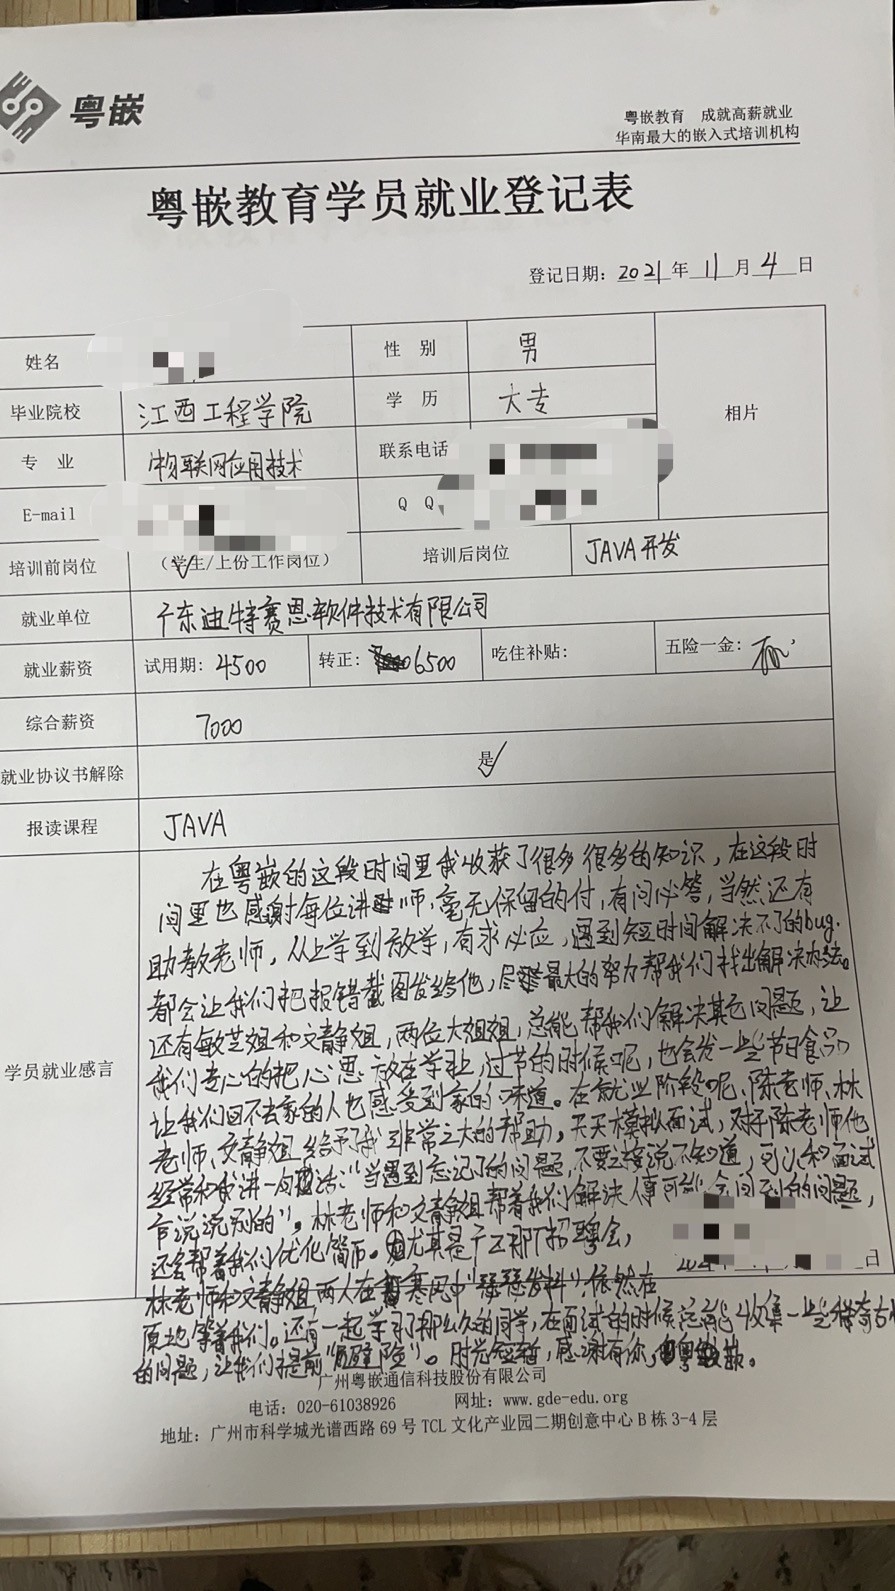 粤嵌
粤嵌教育 成就高薪就业
华南最大的嵌入式培训机构
粤嵌教育学员就业登记表
登记日期：2021年11月4日
姓名
性 别 男
相片
毕业院校 江西工程学院 学 历 大专
专 业 物联网应用技术 联系电话
E-mail Q Q
培训前岗位 （学生/上份工作岗位） 培训后岗位 JAVA开发
就业单位 广东迪特赛恩软件技术有限公司
就业薪资 试用期：4500 转正：6500 吃住补贴： 五险一金：有
综合薪资 7000
就业协议书解除 是
报读课程 JAVA
学员就业感言
在粤嵌的这段时间里我收获了很多很多的知识，在这段时
间里也感谢每位讲师，毫无保留的付，有问必答，当然还有
助教老师，从上学到放学，有求必应，遇到短时间解决不了的bug.
都会让我们把报错截图发给他，尽最大的努力帮我们找出解决办法。
还有敏芝姐和文静姐，两位大姐姐，总能帮我们解决其它问题，让
我们专心的把心思放在学业，过节的时候呢，也会发一些节日食品
让我们回不去家的人也感受到家的味道。在就业阶段呢，陈老师、林
老师、文静姐给予了我非常之大的帮助，天天模拟面试，对于陈老师他
经常和我讲一句话：“当遇到忘记了的问题，不要直接说不知道，可以和面试
官说说别的”。林老师和文静姐帮着我们解决可能会问到的问题，
还会帮着我们优化简历。尤其是广工那个招聘会，
日
林老师和文静姐两人在寒风中“瑟瑟发抖”，依然在
原地等着我们。还有一起学习那么久的同学，在面试的时候总能收集一些稀奇古怪
的问题，让我们提前“避险”。时光短暂，感谢有你，粤嵌。
广州粤嵌通信科技股份有限公司
电话：020-61038926 网址：www.gde-edu.org
地址：广州市科学城光谱西路69号TCL文化产业园二期创意中心B栋3-4层